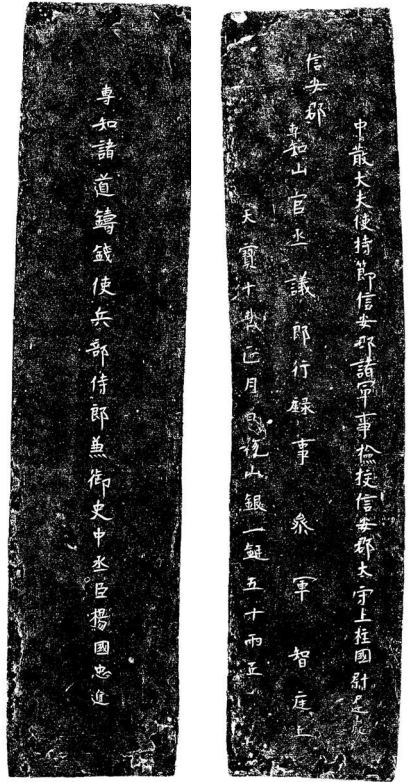 中散大夫使持節信安郡諸軍事撿挍信安郡太守上柱國尉遲巖
信安郡專知山官丞議郎行録事參軍智庭上
天寶十載正月日稅山銀一鋌五十兩正
專知諸道鑄錢使兵部侍郎兼御史中丞臣楊國忠進